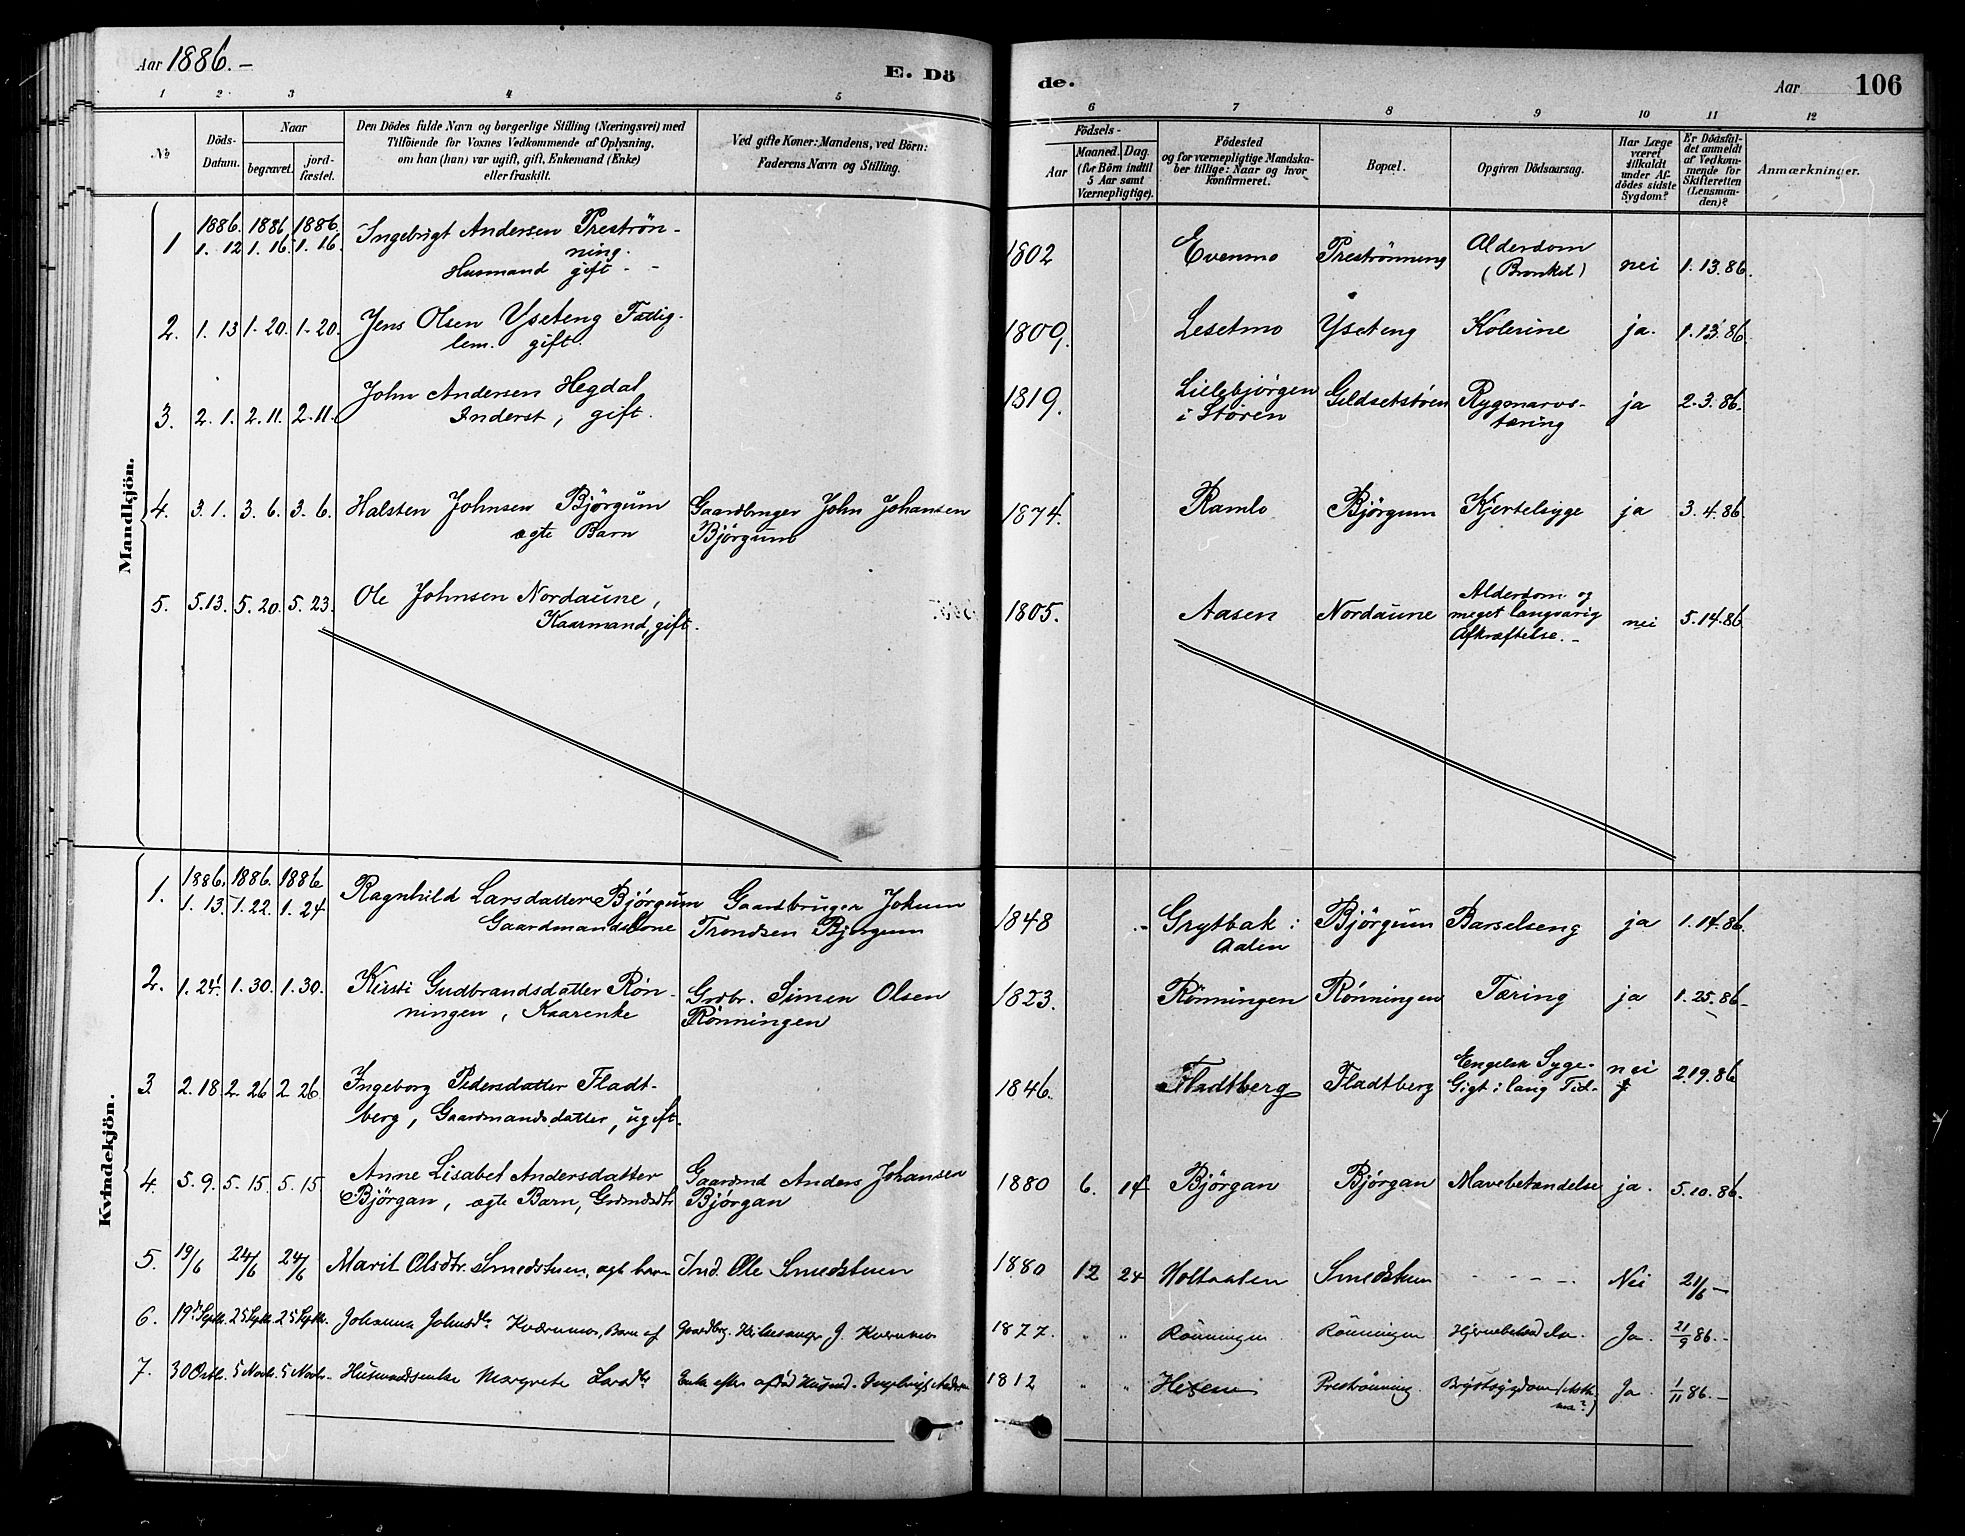 Aar 1886.-
E. Dö
de.
Aar
106
1 2 3 4 5 6 7 8 9 10 11 12
No
Döds-
Datum.
Naar
begravet.
jord-
fæstet.
Den Dödes fulde Navn og borgerlige Stilling (Næringsvei) med
Tilföiende for Voxnes Vedkommende af Oplysning,
om han (hun) var ugift, gift, Enkemand (Enke)
eller fraskilt.
Ved gifte Koner: Mandens, ved Börn:
Faderens Navn og Stilling.
Födsels-
Aar
Maaned. Dag.
(for Börn indtil
5 Aar samt
Værnepligtige).
Födested
og for værnepligtige Mandska-
ber tillige: Naar og hvor
konfirmeret.
Bopæl.
Opgiven Dödsaarsag.
Har Læge
været
tilkaldt
under Af-
dödes sidste
Sygdom?
Er Dödsfal-
det anmeldt
af Vedkom-
mende for
Skifteretten
(Lensman-
den)?
Anmærkninger.
Mandkjön.
1886. 1886 1886.
1 1. 12 1. 16. 1. 16. Ingebrigt Andersen Preströn-
ning.
Husmand gift - -
1802 Evenmo Preströnning Alderdom
(Bronkit) nei 1. 13. 86.
2. 1. 13 1. 20. 1. 20. Jens Olsen Yseteng Fattig-
lem. gift.
1809. Lesetmo Yseteng Kolerine ja. 1. 13. 86.
3. 2. 1. 2. 11. 2. 11. John Andersen Hegdal
Inderst, gift.
1819. Lillebjörgen
i Stören Gildsetstöen Rygmarvs-
tæring ja 2. 3. 86.
4. 3. 1. 3. 6. 3. 6. Halsten Johnsen Björgum
ægte Barn
Gaardbruger John Johansen
Björgum
1874. Ramlo Björgum Kjertelsyge ja 3. 4. 86.
5. 5. 13. 5. 20. 5. 23. Ole Johnsen Nordaune,
Kaarmand, gift.
1805. Aasen Nordaune Alderdom og
meget langvarig
Afkræftelse. - nei 5. 14. 86
Kvindekjön.
1886. 1886. 1886
1. 1. 13. 1. 22. 1. 24 Ragnhild Larsdatter Björgum
Gaardmandskone
Gaardbruger Jokum
Trondsen Björgum
1848 Grytbak i
Aalen Björgum Barselseng ja 1. 14. 86.
2. 1. 24. 1. 30. 1. 30. Kirsti Gudbrandsdatter Rön-
ningen, Kaarenke
Grdbr. Simen Olsen
Rönningen
1823. Rönningen Rönningen Tæring ja 1. 25. 86-
3 2. 18. 2. 26 2 26. Ingeborg Pedersdatter Fladt-
berg, Gaardmandsdatter, ugift.
1846. Fladtberg Fladtberg Engelsk Syge-
Gigt i lang Tid- nei 2. 19. 86
4. 5. 9. 5. 15. 5. 15 Anne Lisabet Andersdatter
Björgan, ægte Barn, Grdmdsdtr.
Gaardmd Anders Johansen
Björgan
1880 6. 14 Björgan Björgan Mavebetændelse ja. 5. 10. 86.
5. 19/6 24/6 24/6 Marit Olsdtr. Smedstuen, ægt barn Ind. Ole Smedstuen
1880 12 24 Holtaalen Smedstuen - - - -. Nei 21/6 -
6. 19de Septb. 25 Septb. 25 Septb. Johanna Johnsdtr Kværnmo, Barn af Gaardbrg. Kirkesanger, J. Kværnmo
1877. " " Rönningen Rönningen Hjernebetændelse. Ja. 21/9 86. -
7. 30 Octb. 5 Novb. 5 Novb. Husmandsenke Margrete Larsdtr Enke efter afdöd Husmd. Ingebrigt Andersen
1812 " " Hexem Preströnning. Brystsygdom (Asth-
ma?) Ja. 1/11 86. -